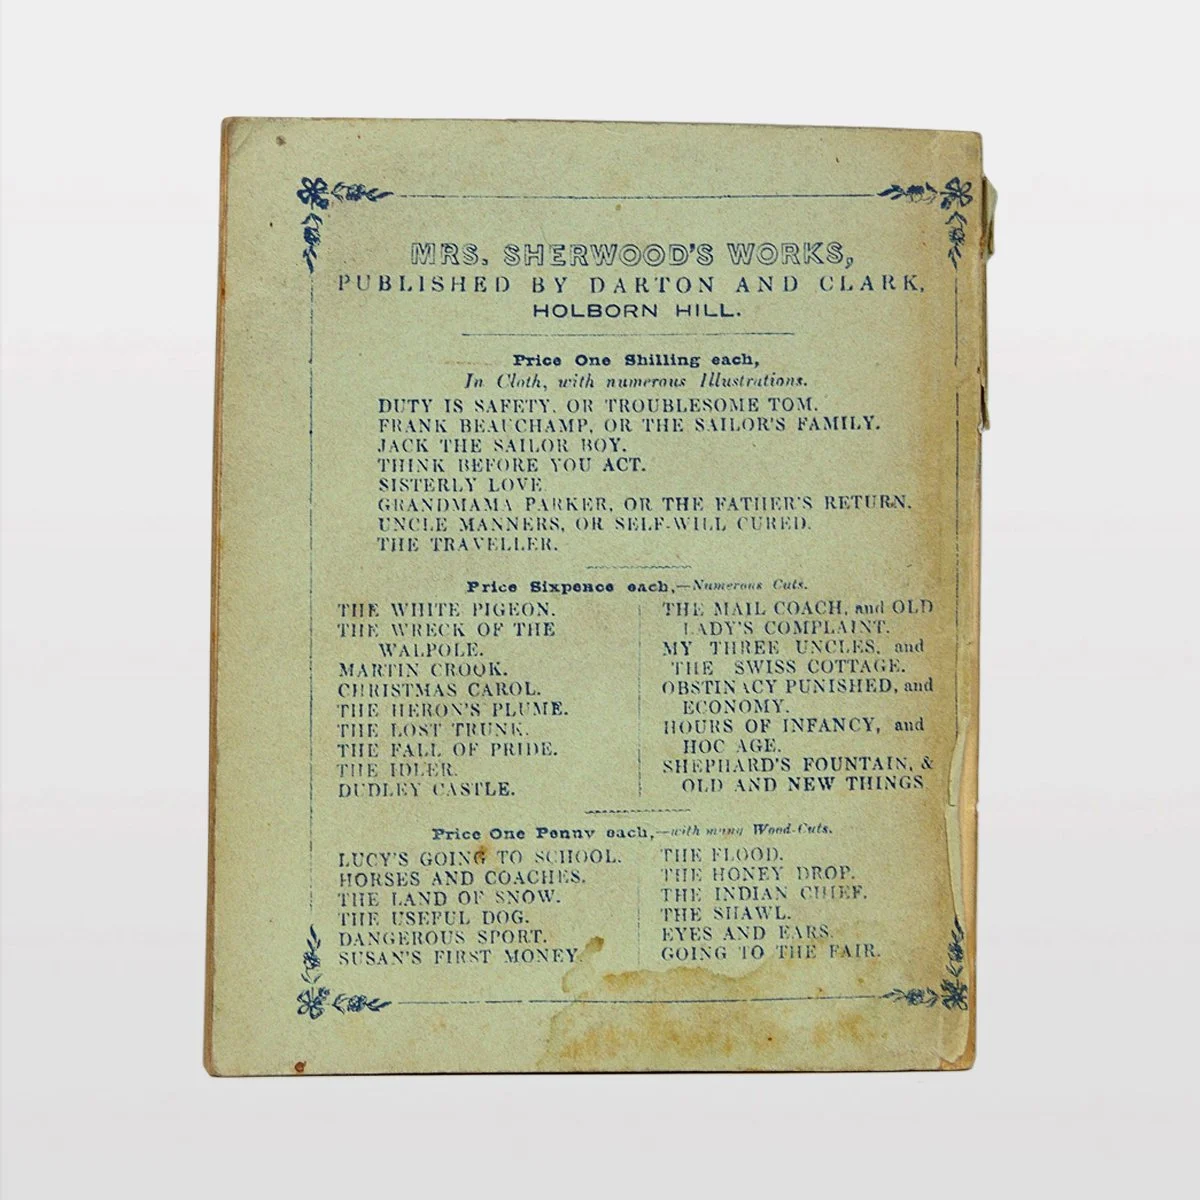 MRS. SHERWOOD'S WORKS,
PUBLISHED BY DARTON AND CLARK,
HOLBORN HILL.
Price One Shilling each,
In Cloth, with numerous Illustrations.
DUTY IS SAFETY, OR TROUBLESOME TOM.
FRANK BEAUCHAMP, OR THE SAILOR'S FAMILY.
JACK THE SAILOR BOY.
THINK BEFORE YOU ACT.
SISTERLY LOVE
GRANDMAMA PARKER, OR THE FATHER'S RETURN.
UNCLE MANNERS, OR SELF-WILL CURED.
THE TRAVELLER.
Price Sixpence each,—Numerous Cuts.
THE WHITE PIGEON.
THE WRECK OF THE
WALPOLE.
MARTIN CROOK.
CHRISTMAS CAROL.
THE HERON'S PLUME.
THE LOST TRUNK.
THE FALL OF PRIDE.
THE IDLER.
DUDLEY CASTLE.
THE MAIL COACH, and OLD
LADY'S COMPLAINT.
MY THREE UNCLES, and
THE SWISS COTTAGE.
OBSTINACY PUNISHED, and
ECONOMY.
HOURS OF INFANCY, and
HOC AGE.
SHEPHARD'S FOUNTAIN, &
OLD AND NEW THINGS
Price One Penny each,—with many Wood-Cuts.
LUCY'S GOING TO SCHOOL.
HORSES AND COACHES.
THE LAND OF SNOW.
THE USEFUL DOG.
DANGEROUS SPORT.
SUSAN'S FIRST MONEY.
THE FLOOD.
THE HONEY DROP.
THE INDIAN CHIEF.
THE SHAWL.
EYES AND EARS.
GOING TO THE FAIR.